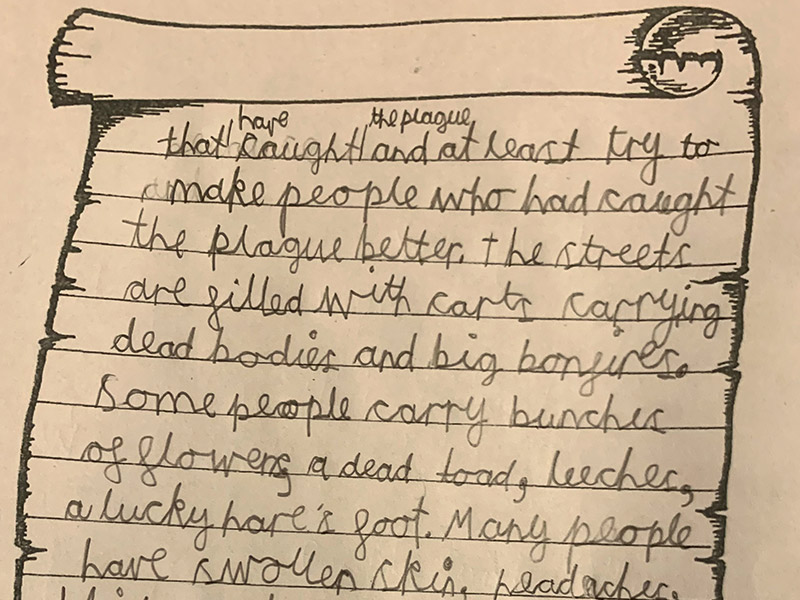 have the plague
that caught and at least try to
make people who had caught
the plague better. The streets
are filled with carts carrying
dead bodies and big bonfires.
Some people carry bunches
of flowers, a dead toad, leeches,
a lucky hare's foot. Many people
have swollen skin, headaches.